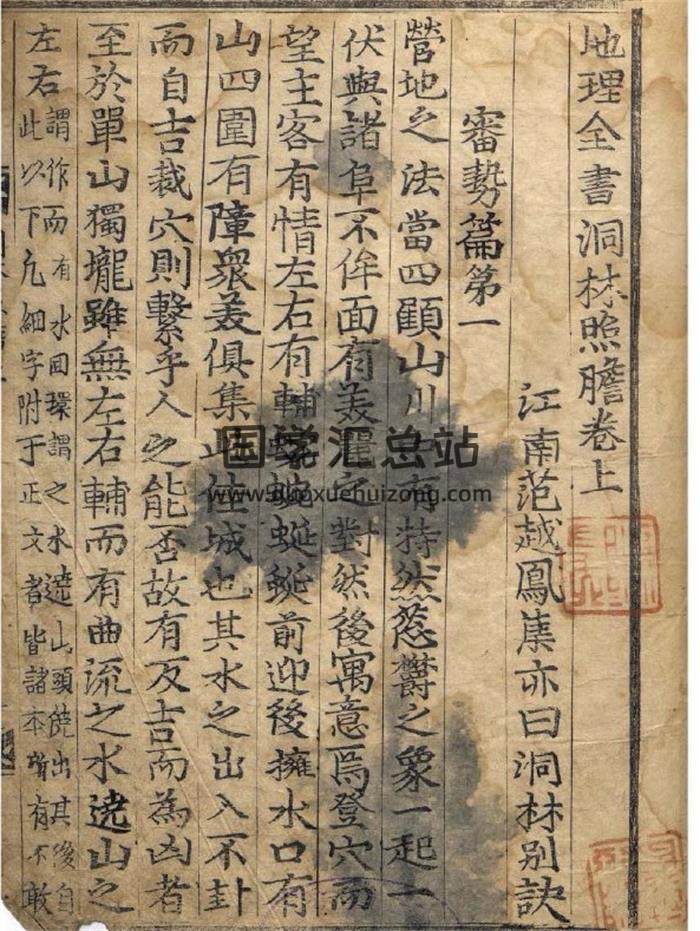 地理全書洞林照膽卷上
江南范越鳳集亦曰洞林別訣
審勢篇第一
營地之法當四顧山川中有特然蔥欝之象一起一
伏與諸阜不侔面有美麗之對然後寓意焉登穴而
望主客有情左右有輔蜿蜒前迎後擁水口有
山四圍有障衆美俱集此佳城也其水之出入不卦
而自吉裁穴則繫乎人之能否故有反吉而為凶者
至於單山獨壠雖無左右輔而有曲流之水遶山之
左右謂作而有水囬環謂之水遶山頭饒出其後自
此以下凡細字附于正文者皆諸本所有不敢
国学汇总站
www.guoxuehuizong.com